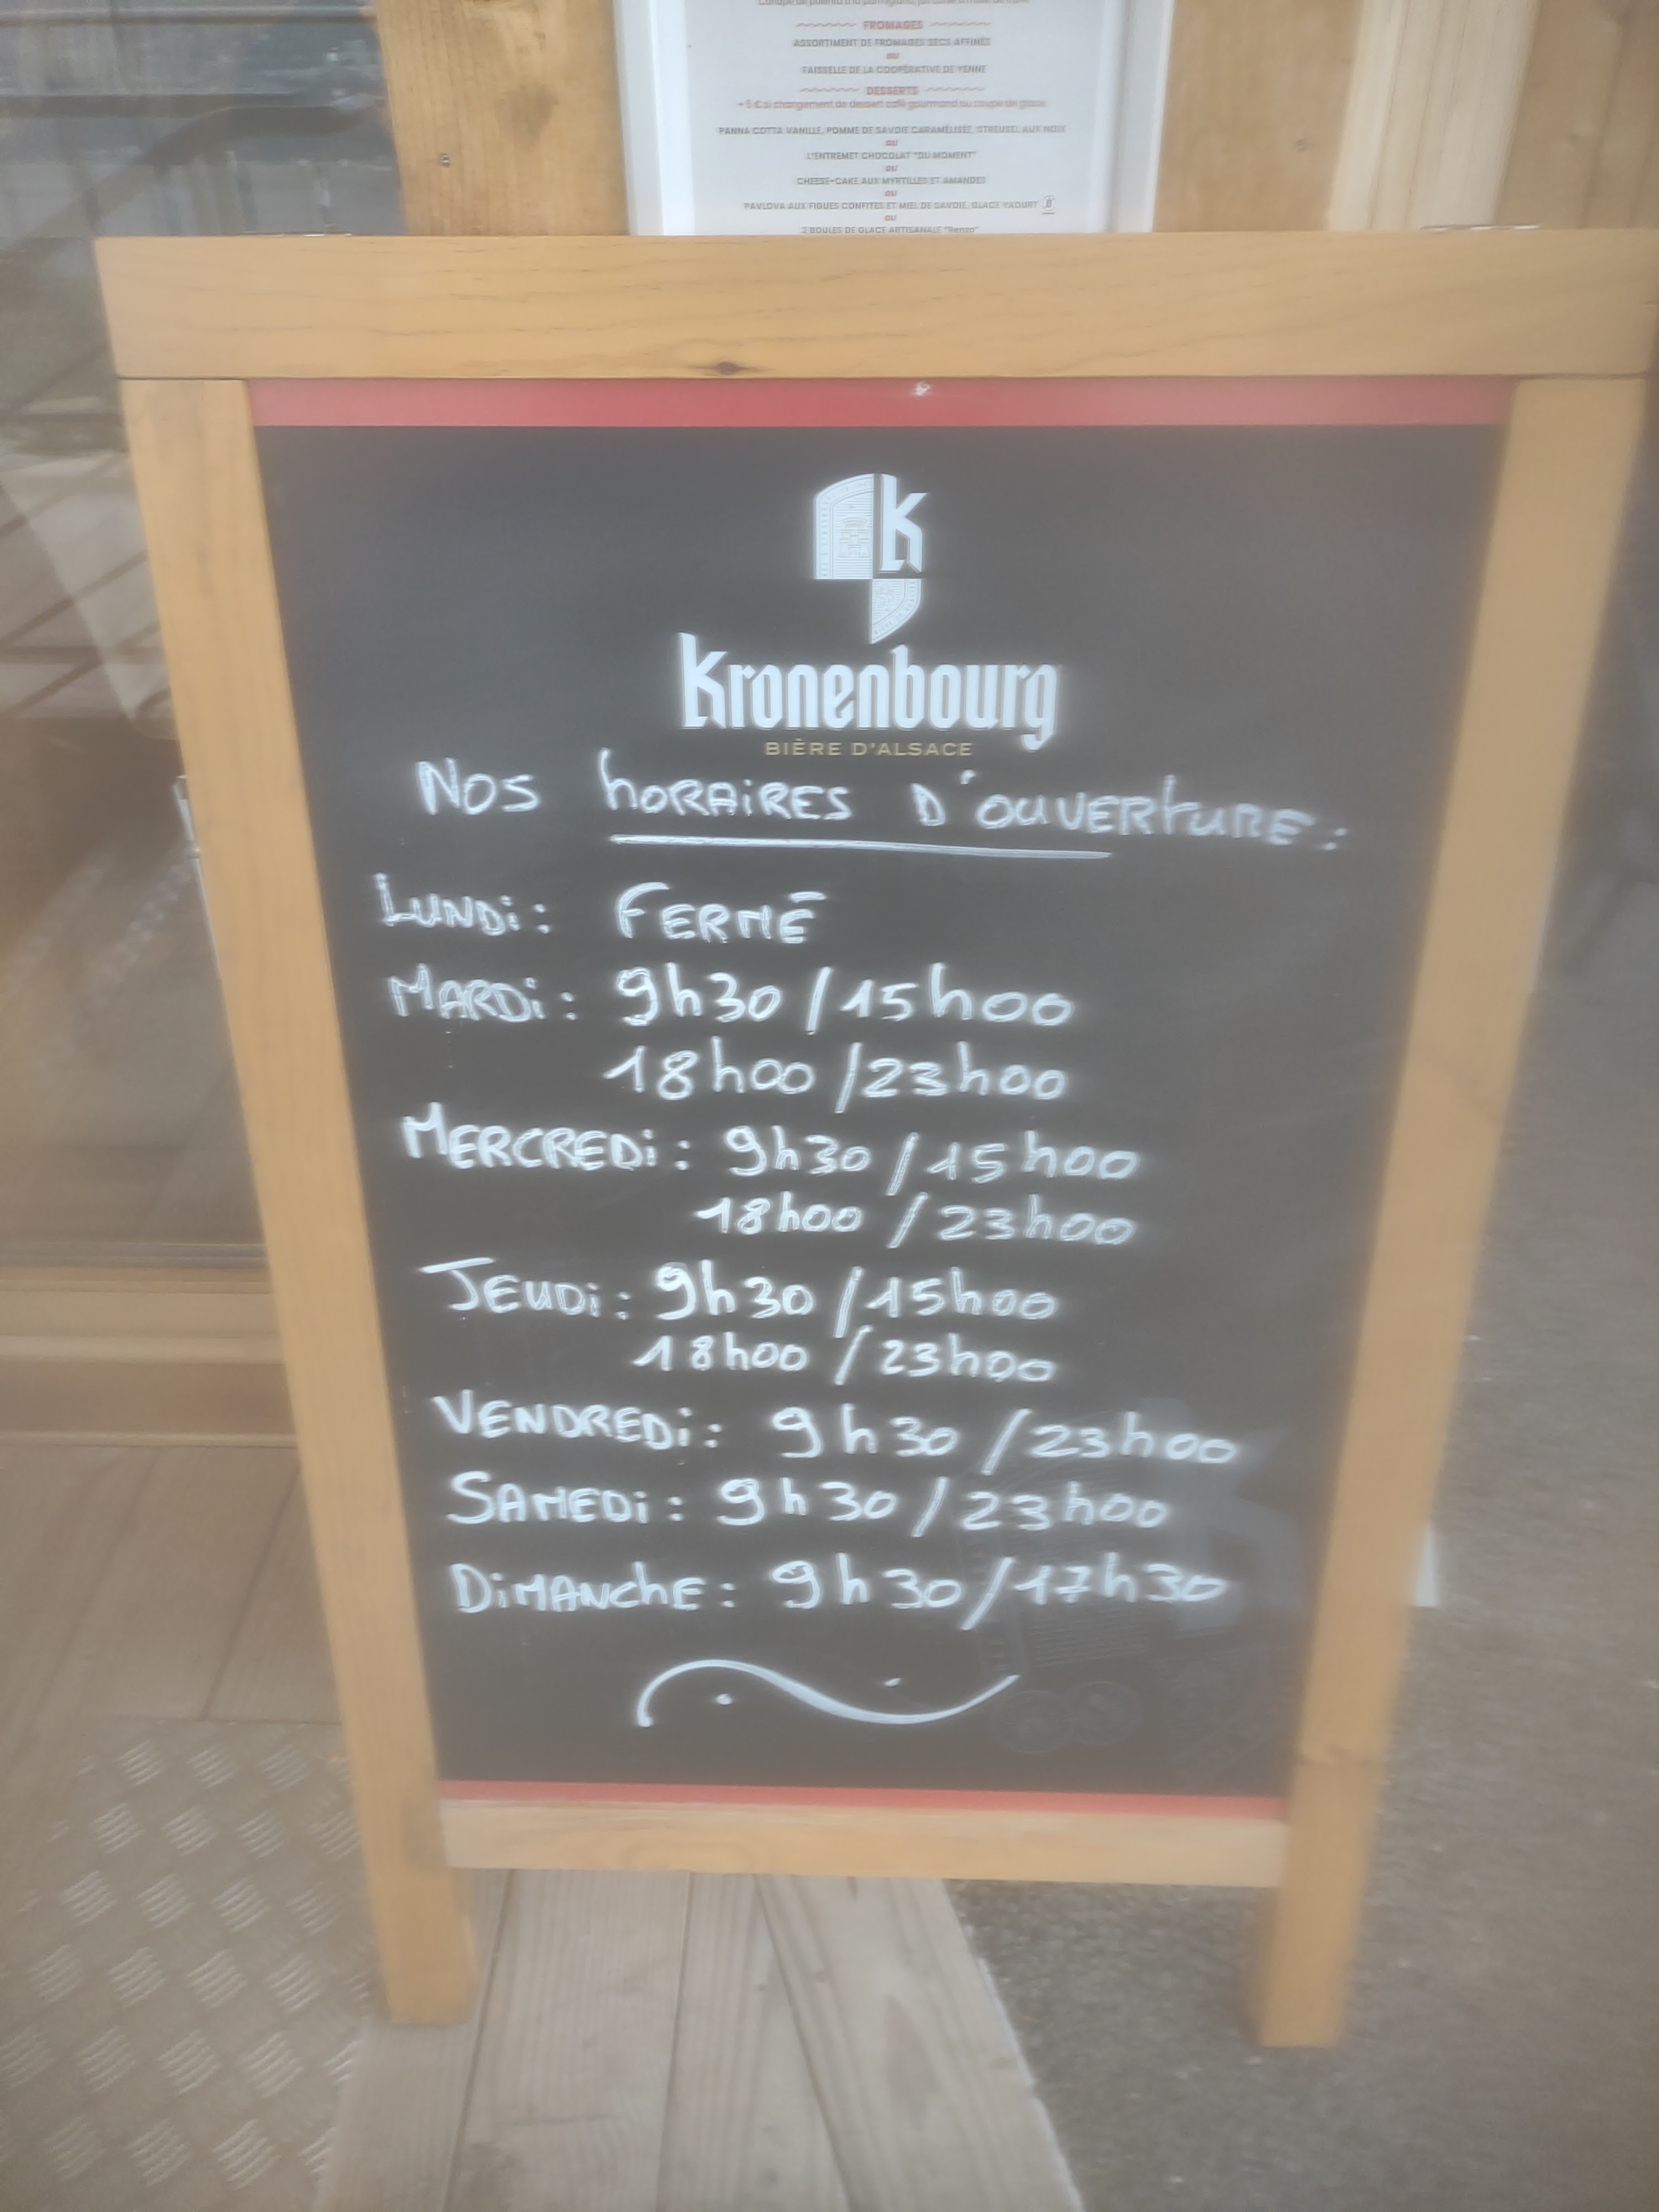 FROMAGES
ASSORTIMENT DE FROMAGES SECS AFFINÉS
ou
FAISSELLE DE LA COOPÉRATIVE DE YENNE
DESSERTS
+5 € si changement de dessert café gourmand ou coupe de glace
PANNA COTTA VANILLE, POMME DE SAVOIE CARAMÉLISÉE, STREUSEL AUX NOIX
ou
L'ENTREMET CHOCOLAT "DU MOMENT"
ou
CHEESE-CAKE AUX MYRTILLES ET AMANDES
ou
PAVLOVA AUX FIGUES CONFITES ET MIEL DE SAVOIE, GLACE YAOURT
ou
2 BOULES DE GLACE ARTISANALE
K
Kronenbourg
BIÈRE D'ALSACE
NOS hORAiRES D'OUVERtURE:
LUNDi: FERMÉ
MARDi: 9h30/15h00
18h00/23h00
MERCREDi: 9h30/15h00
18h00/23h00
JEUDi: 9h30/15h00
18h00/23h00
VENDREDi: 9h30/23h00
SAMEDi: 9h30/23h00
DiMANChE: 9h30/17h30